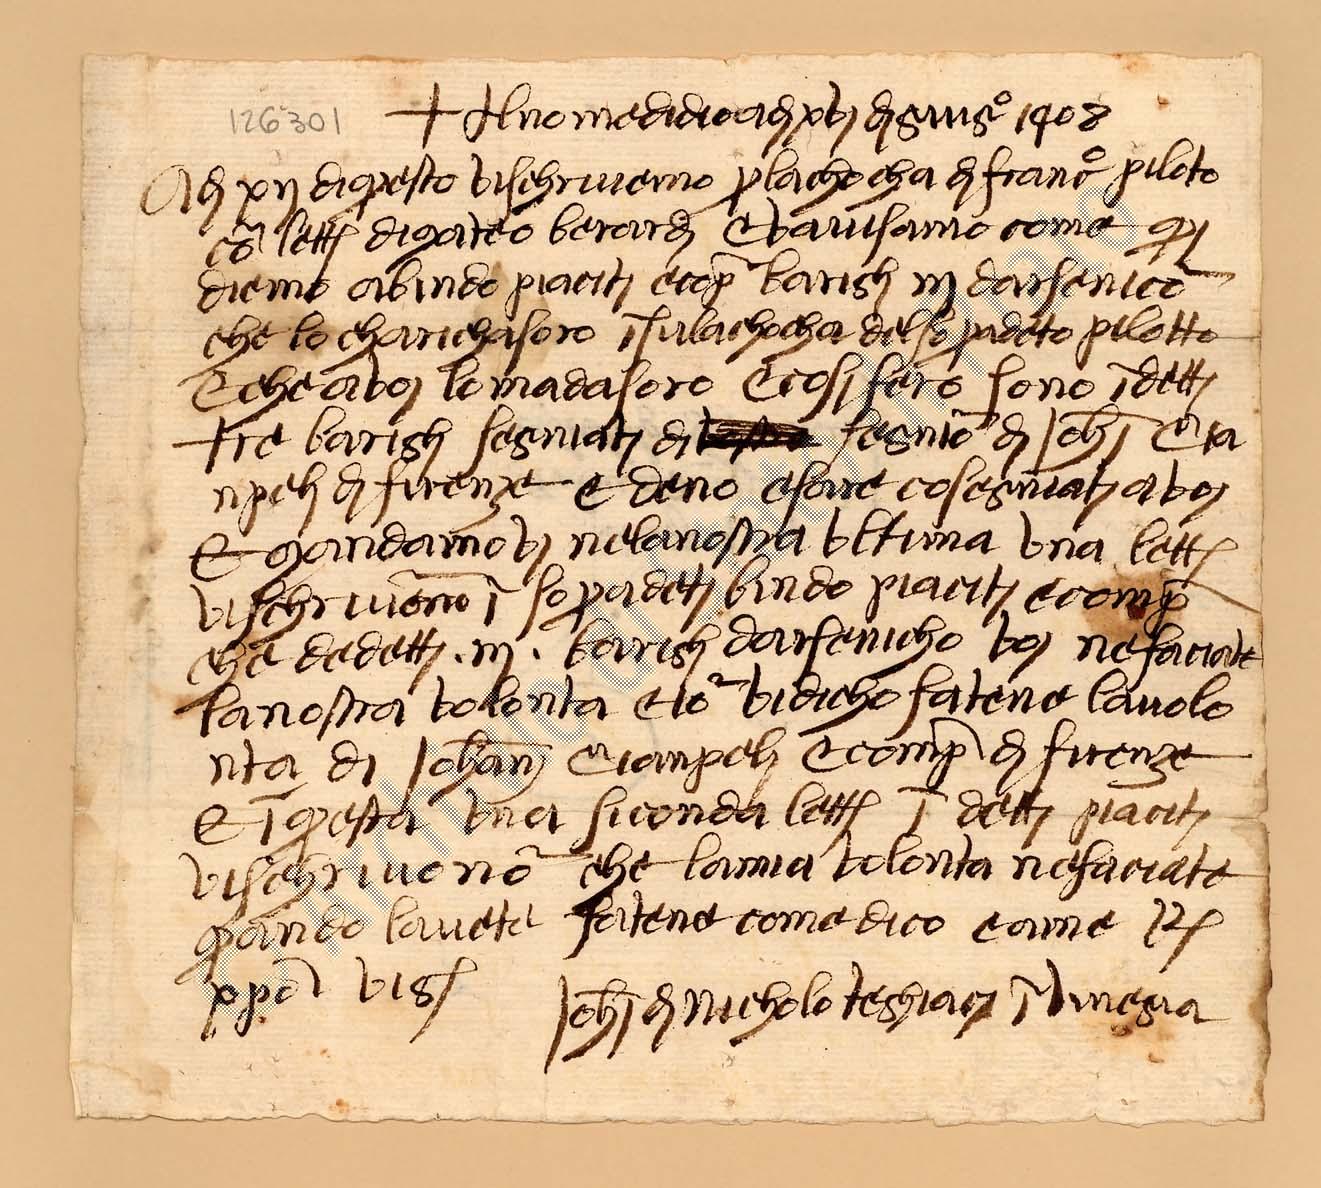 126301
+ Al nome di dio adi xvj di giugº 1408
Adi xij di questo vi schrivemo p la chocha di francº piloto
cō letti di mateo berardi e vavisamo come qui
diemo a bindo piaciti e cōp barigli iij darsenico
che lo charichasoro ī sula chocha del sopradeto pilotto
E che a voi lo madasoro E cosi fero sono ī detti
tre barigli segniati di segnio di Johī Cia
npeli di firenze e deno esare cosegniati a voi
E mandamovi nela nostra ultima una letti
vi schrivono ī sopradeti bindo piaciti e comp
che de detti .iij. barigli darsenicho voi ne faciate
la nostra volonta e io vi dicho fatene la volo
nta di Johani Cianpeli E comp di firenze
E ī questa una siconda letti ī detti piaciti
vi schrivono che la mia volonta ne faciate
quando lavete fatene come dico e a me
xpō vi gſ
Johī di Nicholo teghiaci ī Vinegia
archivio di stato prato